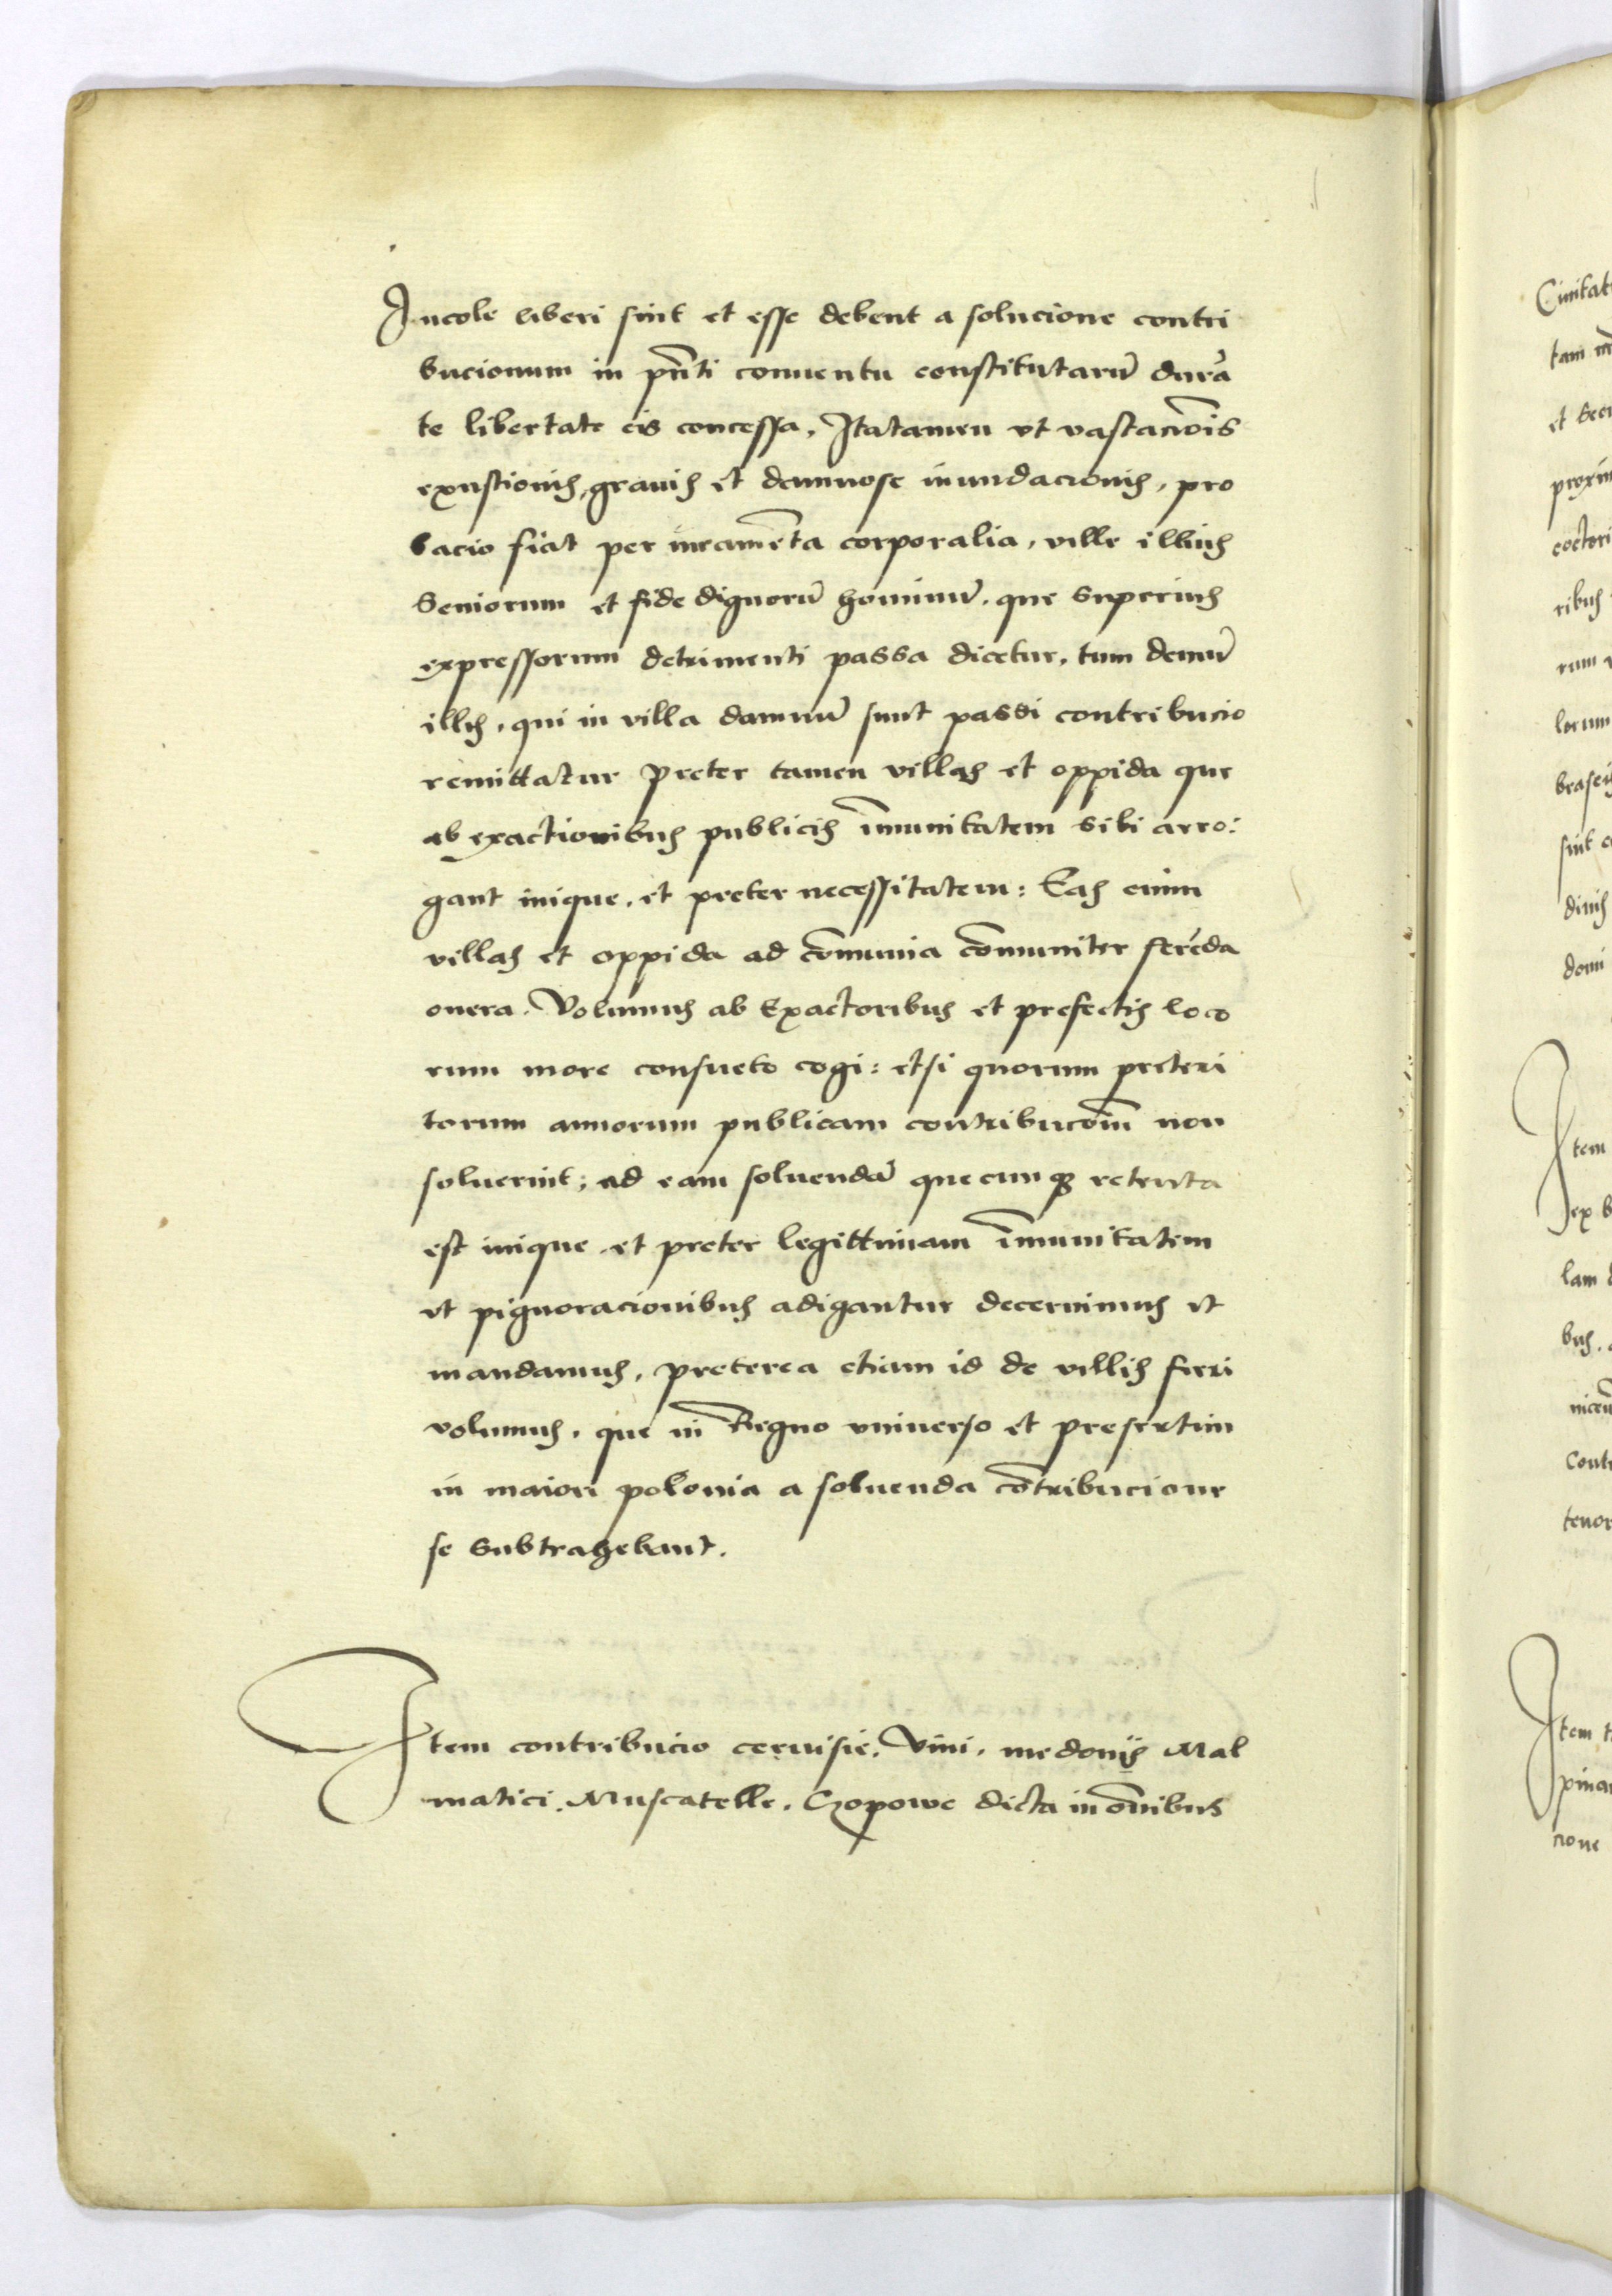 Incole liberi sint et esse debent a solucione contri
bucionum in pn̄ti conuentu constitutarū durā
te libertate eis concessa, Itatamen vt vastacōis
exustionis, grauis et damnose inundacionis, pro
bacio fiat per iuramēta corporalia, ville illius
Seniorum et fide dignorū hominū, que superius
expressorum detrimenti passa dicetur, tum demū
illis, qui in villa damnū sunt passi contribucio
remittatur preter tamen villas et oppida que
ab exactionibus publicis īmunitatem sibi arro:
gant inique, et preter necessitatem: Eas enim
villas et oppida ad cōmunia cōmuniter ferēda
onera. Volumus ab Exactoribus et prefectis loco
rum more consueto cogi: etsi quorum preteri
torum annorum publicam contribucōm non
soluerint; ad eam soluendā quecunq3 retenta
est inique, et preter legittimam īmunitatem
vt pignoracionibus adigantur decernimus et
mandamus, preterea etiam id de villis fieri
volumus, que in Regno vniuerso et presertim
in maiori polonia a soluenda cōtribucione
se subtrahebant.
Item contribucio ceruisie, Vini, medonis Mal
matici, Muscatelle, Czopowe dicta in ōnibus
Ciuitat
et
proxim
ribus
rum
lorum
sint
dinis
Item
ex
lam
bus,
Cont
tenor
Item
pina
cione